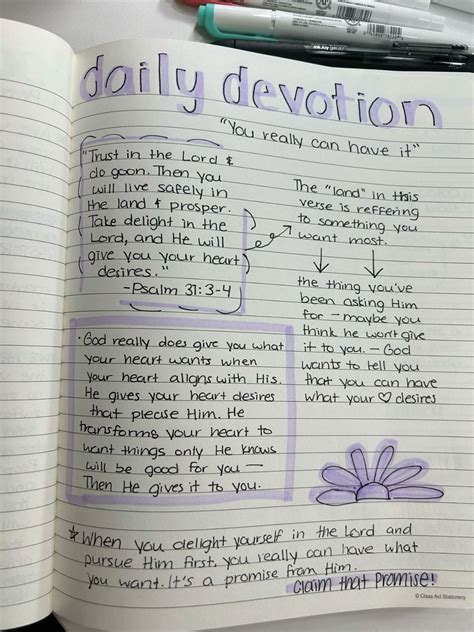 daily devotion
"You really can have it"
"Trust in the Lord &
do goon. Then you
will live safely in
the land & prosper.
Take delight in the
Lord, and He will
give you your heart
desires."
-Psalm 31:3-4
The "land" in this
verse is reffering
to something you
want most.
the thing you've
been asking Him
for - maybe you
think he won't give
it to you. - God
wants to tell you
that you can have
what your ♡ desires
· God really does give you what
your heart wants when
your heart aligns with His.
He gives your heart desires
that please Him. He
transforms your heart to
want things only He knows
will be good for you -
Then He gives it to you.
☆ When you delight yourself in the Lord and
pursue Him first, you really can have what
you want. It's a promise from Him.
Claim that Promise!
© Class Act Stationery